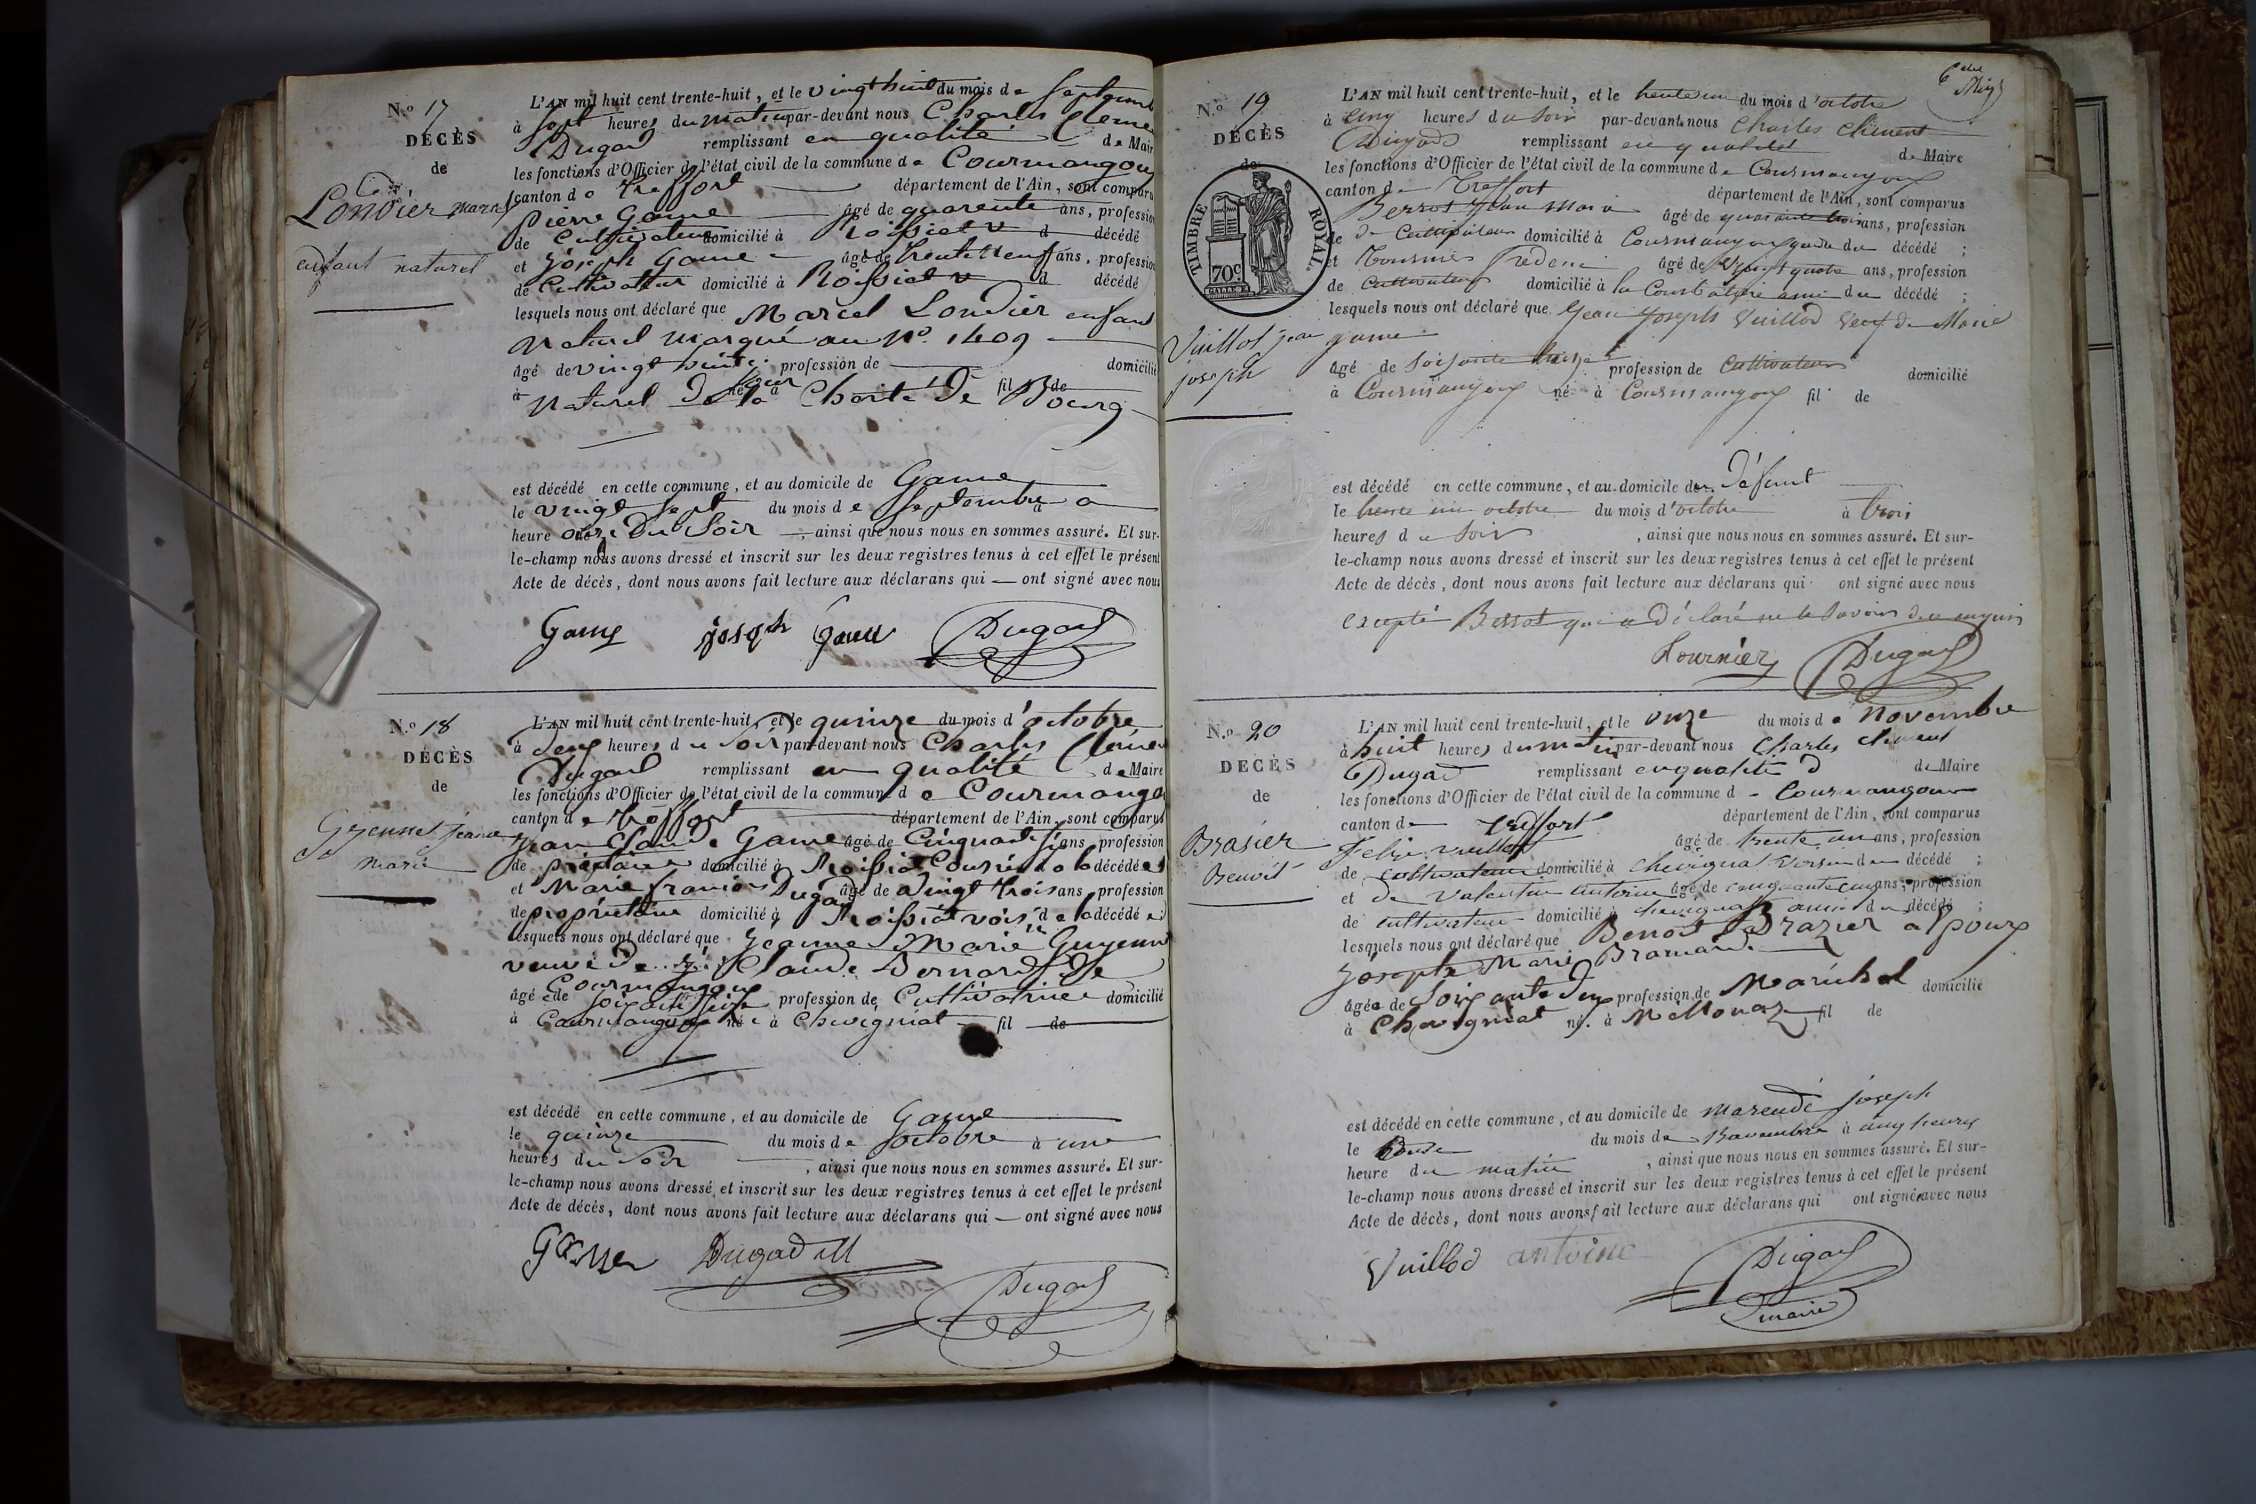 N.o 17
DÉCÈS
de
Londier Marcel
enfant naturel
L'AN mil huit cent trente-huit, et le vingt huit du mois de Septembre
à sept heures du matin par-devant nous Charles Clément
Dugad remplissant en qualité de Maire
les fonctions d'Officier de l'état civil de la commune de Courmangoux
canton de Treffort département de l'Ain, sont comparus
Pierre Game âgé de quarente ans, profession
de Cultivateur domicilié à Roissiat v d décédé
et Joseph Game âgé de trente neuf ans, profession
de Cultivateur domicilié à Roissiat v d décédé
lesquels nous ont déclaré que Marcel Londier enfant
Naturel marqué au N.o 1409
âgé de vingt huit jour profession de domicilié
à né à fil de
Naturel De la Charité De Bourg
est décédé en cette commune, et au domicile de Game
le vingt sept du mois de Septembre à
heure onze Du Soir, ainsi que nous nous en sommes assuré. Et sur-
le-champ nous avons dressé et inscrit sur les deux registres tenus à cet effet le présent
Acte de décès, dont nous avons fait lecture aux déclarans qui — ont signé avec nous
Game joseph Game Dugad
N.o 18
DÉCÈS
de
jeanne
Marie
L'AN mil huit cent trente-huit, et le quinze du mois d'octobre
à deux heures du Soir par-devant nous Charles Clément
Dugad remplissant en qualité de Maire
les fonctions d'Officier de l'état civil de la commun d e Courmangoux
canton de Treffort département de l'Ain, sont comparus
Jean Claude Game âgé de Cinquante six ans, profession
de domicilié à Roissiat Cousin de la décédée
et Marie françois Dugad âgé de Vingt trois ans, profession
de propriétaire domicilié à Roissiat voisin de la décédée
lesquels nous ont déclaré que Jeanne Marie
veuve de Claude Bernard de
Courmangoux
âgée de soixante seize profession de Cultivatrice domicilié
à Courmangoux née à Chevigniat fil de
est décédé en cette commune, et au domicile de Game
le quinze du mois de octobre à une
heures du Soir, ainsi que nous nous en sommes assuré. Et sur-
le-champ nous avons dressé et inscrit sur les deux registres tenus à cet effet le présent
Acte de décès, dont nous avons fait lecture aux déclarans qui — ont signé avec nous
Game Dugad M
Dugad
N.o 19
DÉCÈS
de
TIMBRE ROYAL.
70c.
Vuillot jean
joseph
L'AN mil huit cent trente-huit, et le trente un du mois d'octobre
à cinq heures du Soir par-devant nous Charles Clément
Dugad remplissant en qualité de Maire
les fonctions d'Officier de l'état civil de la commune de Courmangoux
canton de Treffort département de l'Ain, sont comparus
Berrot Jean Marie âgé de quarante trois ans, profession
de de Cultivateur domicilié à Courmangoux du décédé ;
et Tournier âgé de Vingt quatre ans, profession
de Cultivateur domicilié à la ami du décédé ;
lesquels nous ont déclaré que Jean Joseph Vuillod Veuf de Marie
game
âgé de soixante profession de Cultivateur domicilié
à Courmangoux né à Courmangoux fil de
est décédé en cette commune, et au domicile du Défunt
le trente un octobre du mois d'octobre à trois
heures d u Soir, ainsi que nous nous en sommes assuré. Et sur-
le-champ nous avons dressé et inscrit sur les deux registres tenus à cet effet le présent
Acte de décès, dont nous avons fait lecture aux déclarans qui ont signé avec nous
excepté Berrot qui a Déclaré ne le Savoir de ce enquis
Tournier Dugad
N.o 20
DÉCÈS
de
Brasier
Benoit
L'AN mil huit cent trente-huit, et le onze du mois de Novembre
à huit heures du matin par-devant nous Charles Clément
Dugad remplissant en qualité d de Maire
les fonctions d'Officier de l'état civil de la commune d - Courmangoux
canton de Treffort département de l'Ain, sont comparus
Felix Vuillod âgé de trente un ans, profession
de Cultivateur domicilié à Chevignat Voisin du décédé ;
et de Valentin Antoine âgé de cinquante cinq ans, profession
de Cultivateur domicilié à Chevignat ami du décédé ;
lesquels nous ont déclaré que Benoit Brazier Epoux
Josephte Marie
âgée de Soixante Deux profession de Maréchal domicilié
à Chevigniat né à fil de
est décédé en cette commune, et au domicile de joseph
le onze du mois de Novembre à cinq heures
heure du matin, ainsi que nous nous en sommes assuré. Et sur-
le-champ nous avons dressé et inscrit sur les deux registres tenus à cet effet le présent
Acte de décès, dont nous avons fait lecture aux déclarans qui ont signé avec nous
Vuillod antoine Dugad
maire